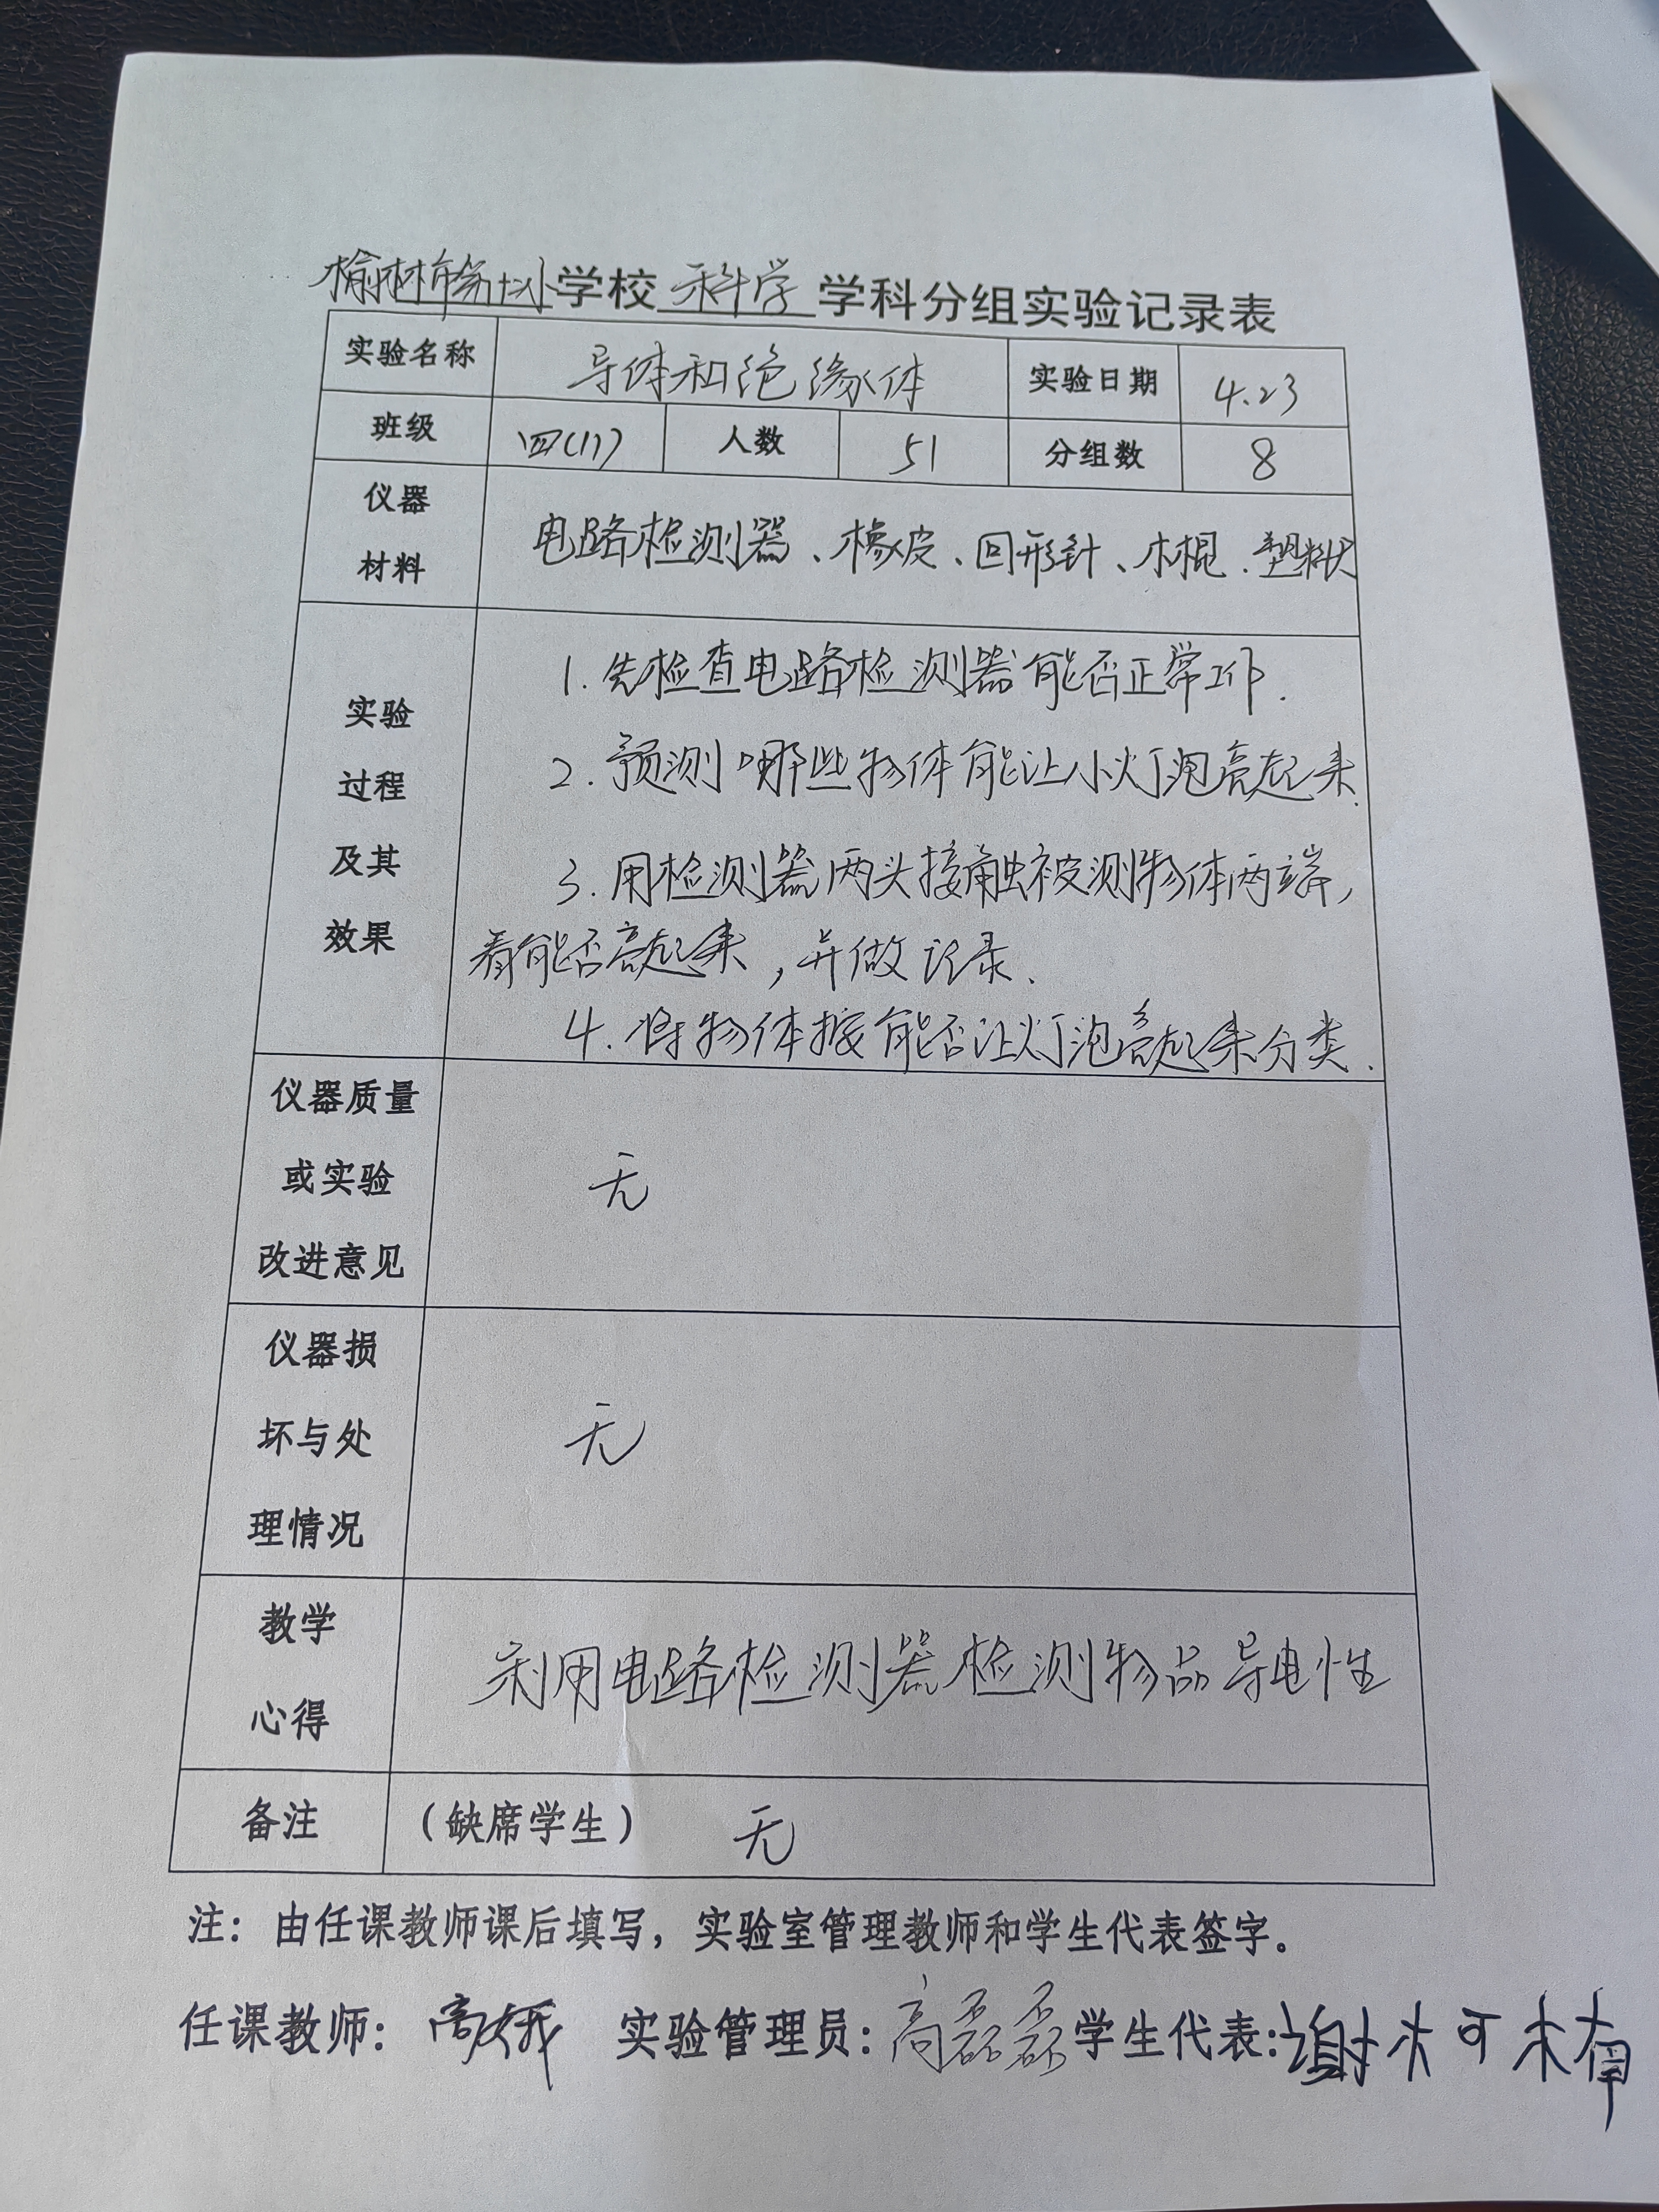 榆林市第十小学校 科学 学科分组实验记录表
实验名称 导体和绝缘体 实验日期 4.23
班级 四(11) 人数 51 分组数 8
仪器
材料
电路检测器、橡皮、回形针、木棍、塑料尺
实验
过程
及其
效果
1.先检查电路检测器能否正常工作.
2.预测哪些物体能让小灯泡亮起来.
3.用检测器两头接触被测物体两端,
看能否亮起来,并做记录.
4.将物体按能否让灯泡亮起来分类.
仪器质量
或实验
改进意见
无
仪器损
坏与处
理情况
无
教学
心得
利用电路检测器检测物品导电性
备注 (缺席学生) 无
注：由任课教师课后填写，实验室管理教师和学生代表签字。
任课教师：高娥 实验管理员：高磊磊 学生代表:谢